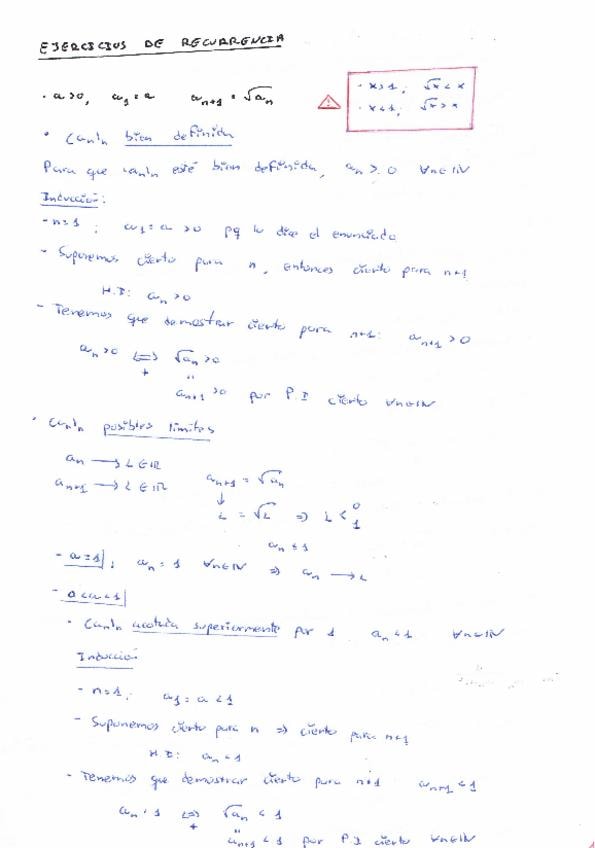 EJERCICIOS DE RECURRENCIA
· a>0, a₁=a aₙ₊₁=√aₙ
· x>1; √x<x
· x<1; √x>x
· {aₙ}ₙ bien definida
Para que {aₙ}ₙ esté bien definida, aₙ>0 ∀n∈ℕ
Inducción:
- n=1; a₁=a>0 pq lo dice el enunciado
- Suponemos cierto para n, entonces cierto para n+1
H.I: aₙ>0
- Tenemos que demostrar cierto para n+1: aₙ₊₁>0
aₙ>0 ⟺ √aₙ>0
+ "
aₙ₊₁>0 por P.I cierto ∀n∈ℕ
· {aₙ}ₙ posibles límites
aₙ → L∈ℝ
aₙ₊₁ → L∈ℝ aₙ₊₁=√aₙ
↓
L=√L ⇒ L < 0
1
- a=1; aₙ=1 ∀n∈ℕ ⇒ aₙ →
- 0<a<1
· {aₙ}ₙ acotada superiormente por 1 aₙ<1 ∀n∈ℕ
Inducción
- n=1; a₁=a<1
- Suponemos cierto para n ⇒ cierto para n+1
H.I: aₙ<1
- Tenemos que demostrar cierto para n+1 aₙ₊₁<1
aₙ<1 ⟺ √aₙ<1
+ "
aₙ₊₁<1 por P.I cierto ∀n∈ℕ